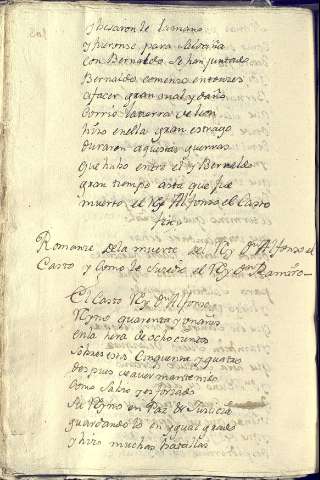 y besaronle la mano
y fueronse para Saldaña
con Bernaldo se han juntado
Bernaldo comenzo entonces
a facer gran mal y daño
Corrio la tierra de leon
hizo en ella gran estrago
duraron aquestas guerras
que hubo entre el y Bernaldo
gran tiempo asta que fue
muerto el Rey Alfonso el Casto
fin
Romanze de la muerte del Rey Dn Alfonso el
Casto y como le suzedio el Rey Dn Ramiro
El Casto Rey Dn Alfonso
Reyno quarenta y un años
en la hera de ochocientos
sobre esta Cinquenta y quatro
despues de aver mantenido
Como sabio y esforzado
Su Reyno en Paz & Justicia
guardandolo en ygual grado
y hizo muchas batallas